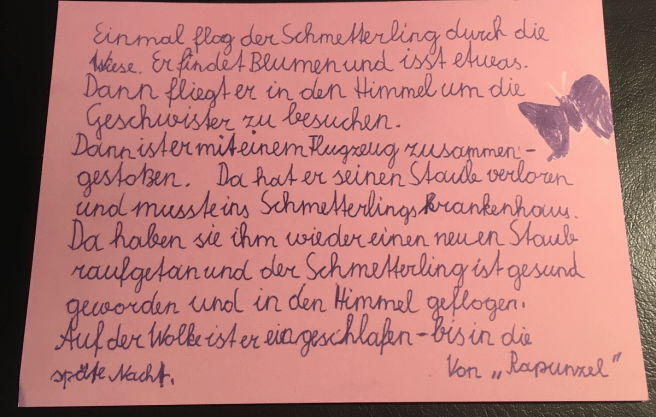 Einmal flog der Schmetterling durch die
Wiese. Er findet Blumen und isst etwas.
Dann fliegt er in den Himmel um die
Geschwister zu besuchen.
Dann ist er mit einem Flugzeug zusammen-
gestoßen. Da hat er seinen Staub verloren
und musste ins Schmetterlingskrankenhaus.
Da haben sie ihm wieder einen neuen Staub
raufgetan und der Schmetterling ist gesund
geworden und in den Himmel geflogen.
Auf der Wolke ist er eingeschlafen - bis in die
späte Nacht. Von „Rapunzel"